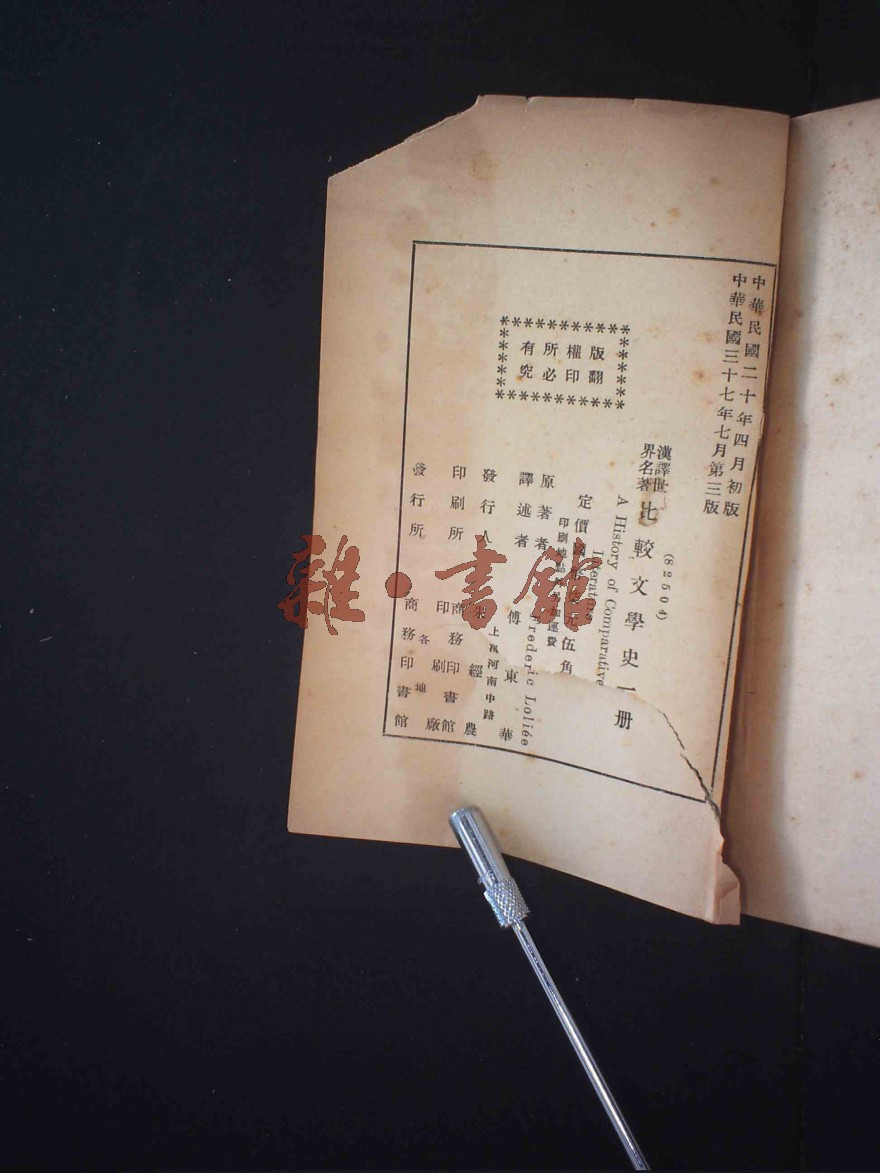 中華民國二十年四月初版
中華民國三十七年七月第三版
(82504)
漢譯世
界名著
比較文學史一册
A History of Comparative
Literature
定價國 元伍角
印刷地點 運費
版權所有
翻印必究
原著者 Frederic Loliée
譯述者 傅東華
發行人 朱經農
上海河南中路
印刷所 商務印書館
印刷廠
發行所 各地
商務印書館
雜·書館